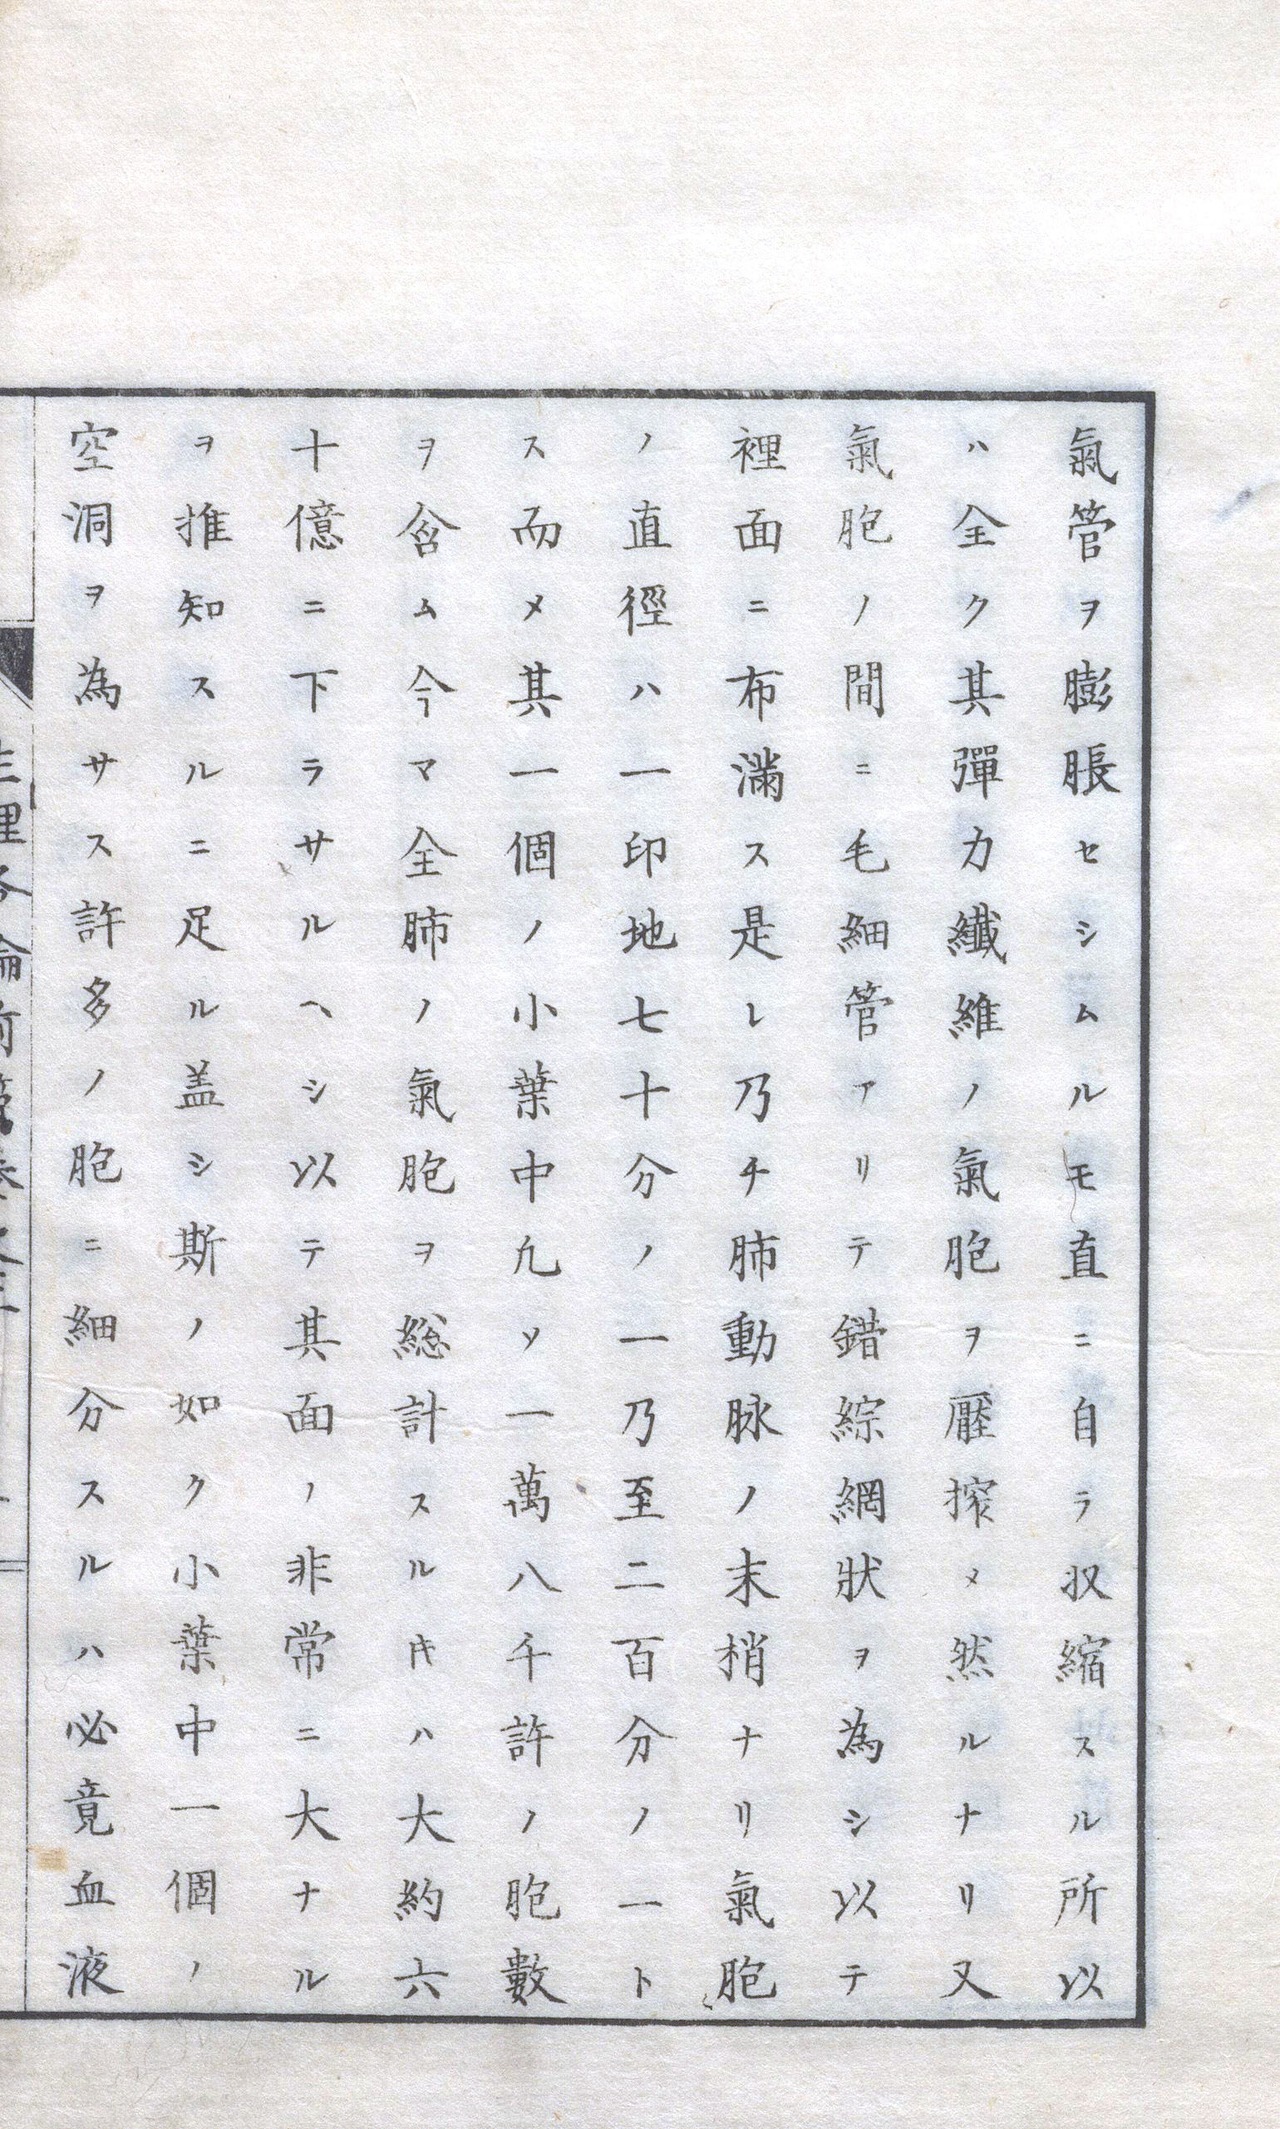 氣管ヲ膨脹セシムルモ直ニ自ラ収縮スル所以
ハ全ク其彈力纖維ノ氣胞ヲ壓搾メ然ルナリ又
氣胞ノ間ニ毛細管アリテ錯綜網狀ヲ為シ以テ
裡面ニ布滿ス是レ乃チ肺動脉ノ末梢ナリ氣胞
ノ直徑ハ一印地七十分ノ一乃至二百分ノ一ト
ス而メ其一個ノ小葉中九ソ一萬八千許ノ胞數
ヲ含ム今マ全肺ノ氣胞ヲ総計スル𪜈ハ大約六
十億ニ下ラサルヘシ以テ其面ノ非常ニ大ナル
ヲ推知スルニ足ル盖シ斯ノ如ク小葉中一個ノ
空洞ヲ為サス許多ノ胞ニ細分スルハ必竟血液